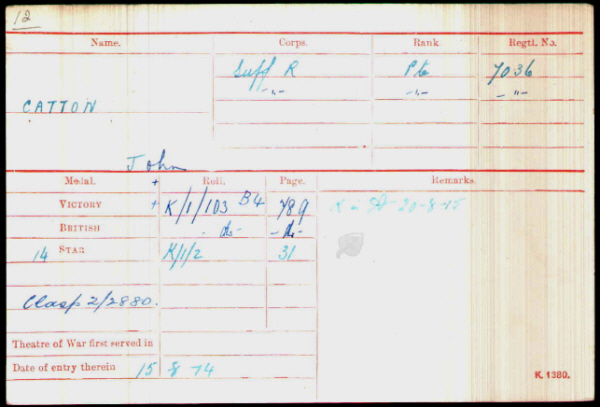 12
Name. Corps. Rank. Regtl. No.
Suff R Pte 7036
-"- -"- -"-
CATTON
John
Medal. Roll. Page. Remarks.
VICTORY K/1/103 B4 789
BRITISH -do- -do-
14 STAR K/1/2 31
Clasp 2/2880.
Theatre of War first served in
Date of entry therein 15 8 14
K. 1380.